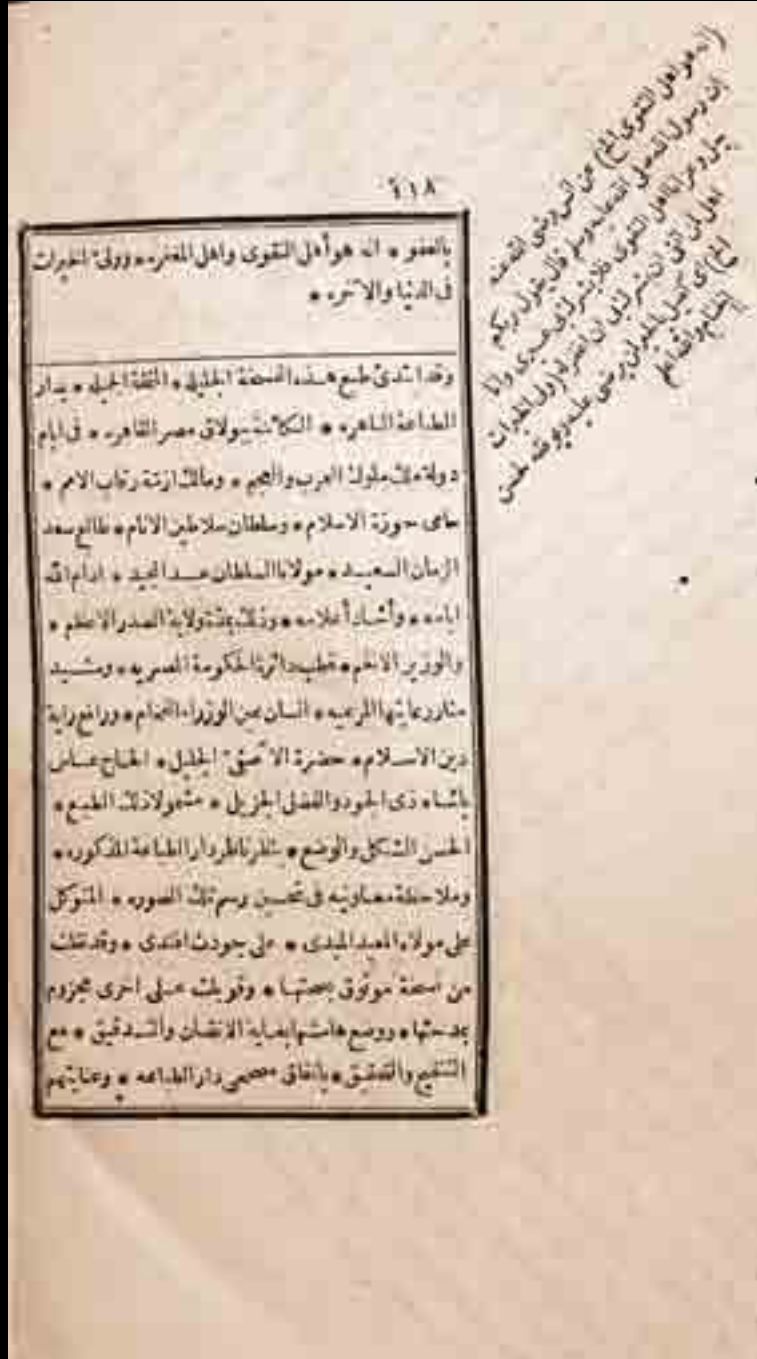 ٤١٨
بالعفو * انه هو أهل التقوى واهل المغفره * وولى الخيرات
فى الدنيا والآخره *
وقد ابتدئ طبع هذه النسخة الجليله * التحفة الجميله * بدار
الطباعة الباهره * الكائنة ببولاق مصر القاهره * فى ايام
دولة ملك ملوك العرب والعجم * ومالك ازمة رقاب الامم *
حامى حوزة الاسلام * وسلطان سلاطين الانام * طالع سعد
الزمان السعيد * مولانا السلطان عبد المجيد * ادام الله
ايامه * وذلك بمدة ولاية الصدر الاعظم *
والوزير الافخم * قطب دائرة الحكومة المصريه * ومشيد
منار رعايتها المرعيه * انسان عين الوزراء الفخام * ورافع راية
دين الاسلام * حضرة الآصفى الجليل * الحاج عباس
باشا * ذى الجود والفضل الجزيل * مشمولا ذلك الطبع *
الحسن الشكل والوضع * بنظر ناظر دار الطباعة المذكوره *
وملاحظة معاونيه فى تحسين رسم تلك الصوره * المتوكل
على مولاه المعيد المبدى * على جودت افندى * وقد نقلت
من نسخة موثوق بصحتها * وقوبلت على اخرى مجزوم
بمدحتها * ووضع هامشها بغاية الاتقان والتدقيق * مع
التنقيح والتحقيق * باتفاق مصححى دار الطباعه * وعنايتهم
(انه هو اهل التقوى الخ) عن انس رضى الله عنه
ان رسول الله صلى الله عليه وسلم قال يقول ربكم
جل وعز انا اهل التقوى فلا يشرك بى غيرى وانا
اهل لمن اتقى ان يشرك بى ان اغفر له (ولى الخيرات
الخ) اى
الختام والله اعلم